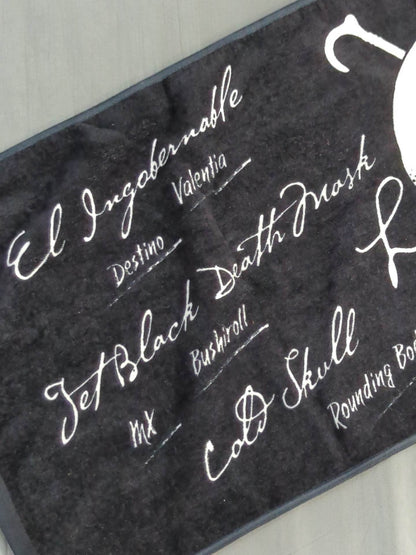 El Ingobernable
Destino Valentia
Jet Black Death Mask
MX Bushiroll
Cold Skull
Rounding